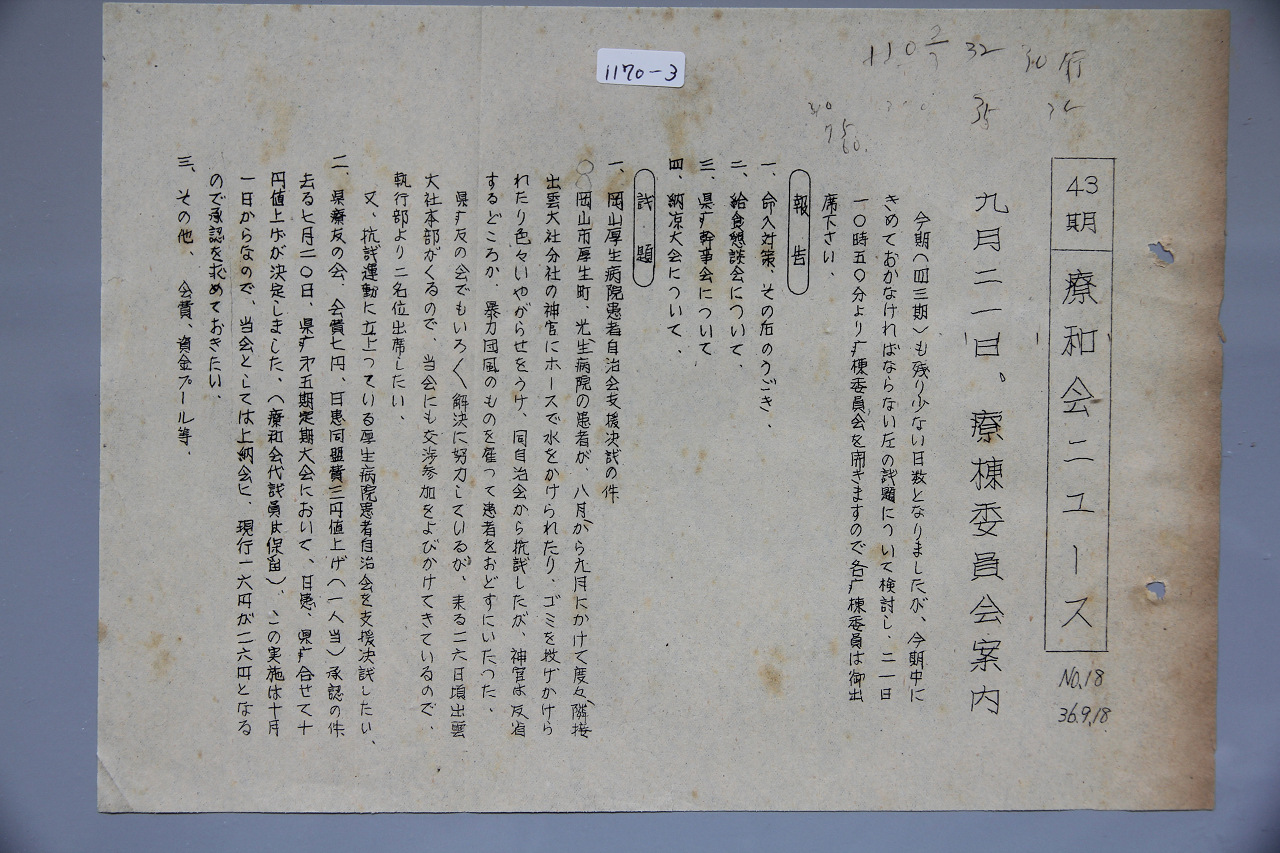 1170-3
43期 療和会ニュース
No.18
36.9.18
九月二一日。療棟委員会案内
今期(四三期)も残り少ない日数となりましたが、今期中に
きめておかなければならない左の議題について検討し、二一日
一〇時五〇分より疒棟委員会を開きますので各疒棟委員は御出
席下さい。
報告
一、命入対策、その后のうごき、
二、給食懇談会について、
三、県疒幹事会について
四、納涼大会について、
議題
一、岡山厚生病院患者自治会支援決議の件
岡山市厚生町、光生病院の患者が、八月から九月にかけて度々、隣接
出雲大社分社の神官にホースで水をかけられたり、ゴミを投げかけら
れたり色々いやがらせをうけ、同自治会から抗議したが、神官は反省
するどころか、暴力団風のものを雇って患者をおどすにいたった、
県疒友の会でもいろ〱解決に努力しているが、来る二六日頃出雲
大社本部がくるので、当会にも交渉参加をよびかけてきているので、
執行部より二名位出席したい、
又、抗議運動に立上っている厚生病院患者自治会を支援決議したい、
二、県療友の会、会費七円、日患同盟費三円値上げ(一人当)承認の件
去る七月二〇日、県疒才五期定期大会において、日患、県疒合せて十
円値上げが決定しました、(療和会代議員は保留)、この実施は十月
一日からなので、当会としては上納会ヒ、現行一六円が二六円となる
ので承認を求めておきたい、
三、その他、会費、資金プール等、